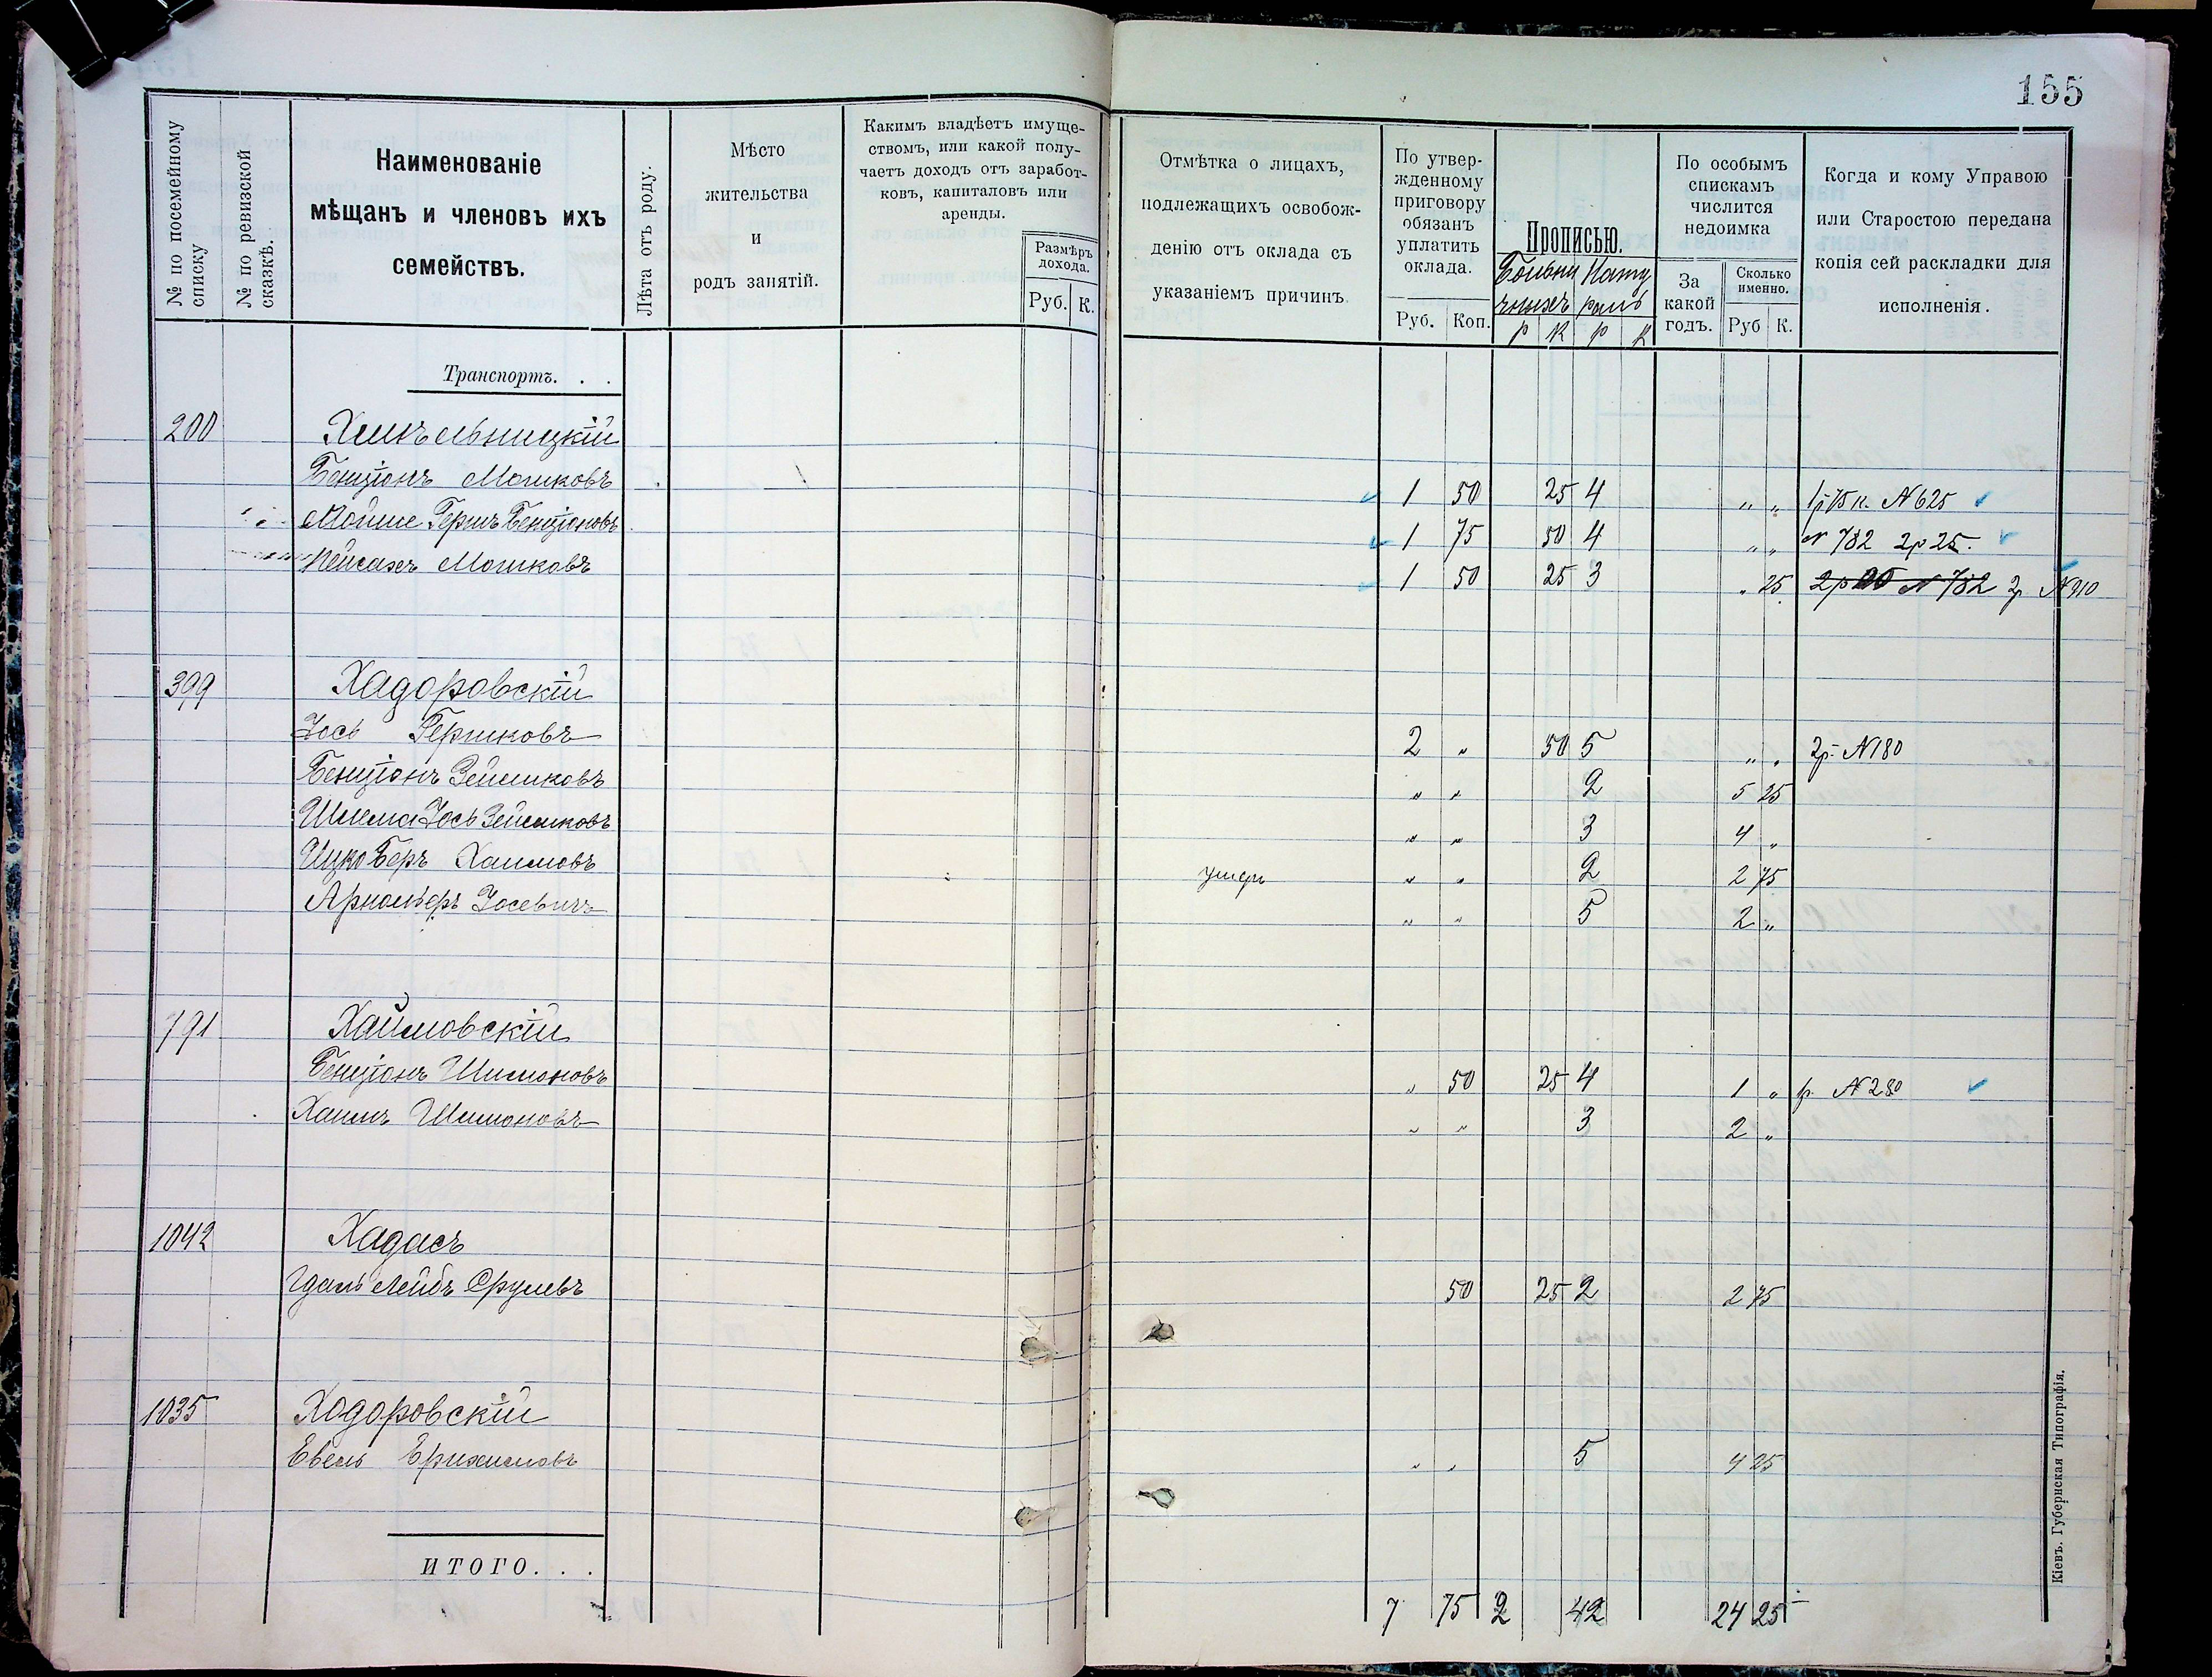 155
№ по посемейному списку
№ по ревизской сказкѣ.
Наименованіе
мѣщанъ и членовъ ихъ
семействъ.
Лѣта отъ роду.
Мѣсто
жительства
и
родъ занятій.
Какимъ владѣетъ имуще-
ствомъ, или какой полу-
чаетъ доходъ отъ заработ-
ковъ, капиталовъ или
аренды.
Размѣръ
дохода.
Руб. К.
Отмѣтка о лицахъ,
подлежащихъ освобож-
денію отъ оклада съ
указаніемъ причинъ.
По утвер-
жденному
приговору
обязанъ
уплатить
оклада.
Руб. Коп.
Прописью.
р к р к
По особымъ
спискамъ
числится
недоимка
За
какой
годъ.
Сколько
именно.
Руб К.
Когда и кому Управою
или Старостою передана
копія сей раскладки для
исполненія.
Транспортъ. . .
200 Хмельницкій
Бенціонъ Мошковъ 1 50 25 4 " " 1р 75 к. N 625
Мойше Гершъ Бенціоновъ 1 75 50 4 " " N 782 2р 25.
Пейсахъ Мошковъ 1 50 25 3 " 25 N 782 2р N 310
399 Хадоровскій
Іось Гершковъ 2 " 50 5 " " 2р N 180
Бенціонъ Зейликовъ " " 2 5 25
Шлема Іось Зейликовъ " " 3 4 "
Ицко Беръ Хаимовъ умеръ " " 2 2 75
Іосевичъ " " 5 2 "
791 Хаймовскій
Бенціонъ Шимоновъ " 50 25 4 1 " р. N 280
Хаимъ Шимоновъ " " 3 2 "
1042 Хадасъ
Гдаль Лейбъ Срулевъ 50 25 2 2 75
1035 Ходоровскій
Евель " " 5 4 25
ИТОГО. . .
7 75 2 42 24 25
Кіевъ. Губернская Типографія.